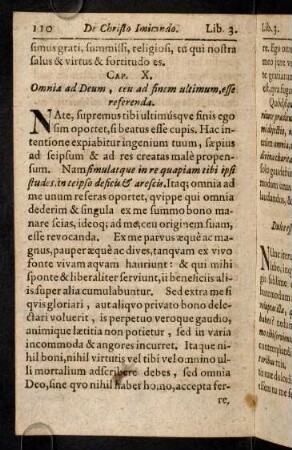 110 De Christo Imitando. Lib. 3.
simus grati, summissi, religiosi, tu qui nostra
salus & virtus & fortitudo es.
CAP. X.
Omnia ad Deum, ceu ad finem ultimum, esse
referenda.
NAte, supremus tibi ultimúsqve finis ego
sim oportet, si beatus esse cupis. Hac in-
tentione expiabitur ingenium tuum, sæpius
ad seipsum & ad res creatas malè propen-
sum. Nam simulatque in re quapiam tibi ipsi
studes, in teipso deficis & arescis. Itaq; omnia ad
me unum referas oportet, qvippe qui omnia
dederim & singula ex me summo bono ma-
nare scias, ideoq; ad me, ceu originem suam,
esse revocanda. Ex me parvus æquè ac ma-
gnus, pauper æquè ac dives, tanqvam ex vivo
fonte vivam aqvam hauriunt: & qui mihi
sponte & liberaliter serviunt, ii beneficiis alii-
is super alia cumulabuntur. Sed extra me si
qvis gloriari, aut aliqvo privato bono dele-
ctari voluerit, is perpetuo veroque gaudio,
animique lætitia non potietur, sed in varia
incommoda & angores incurret. Itaque ni-
hil boni, nihil virtutis vel tibi vel omnino ul-
li mortalium adscribere debes, sed omnia
Deo, sine qvo nihil habet homo, accepta fer-
re,